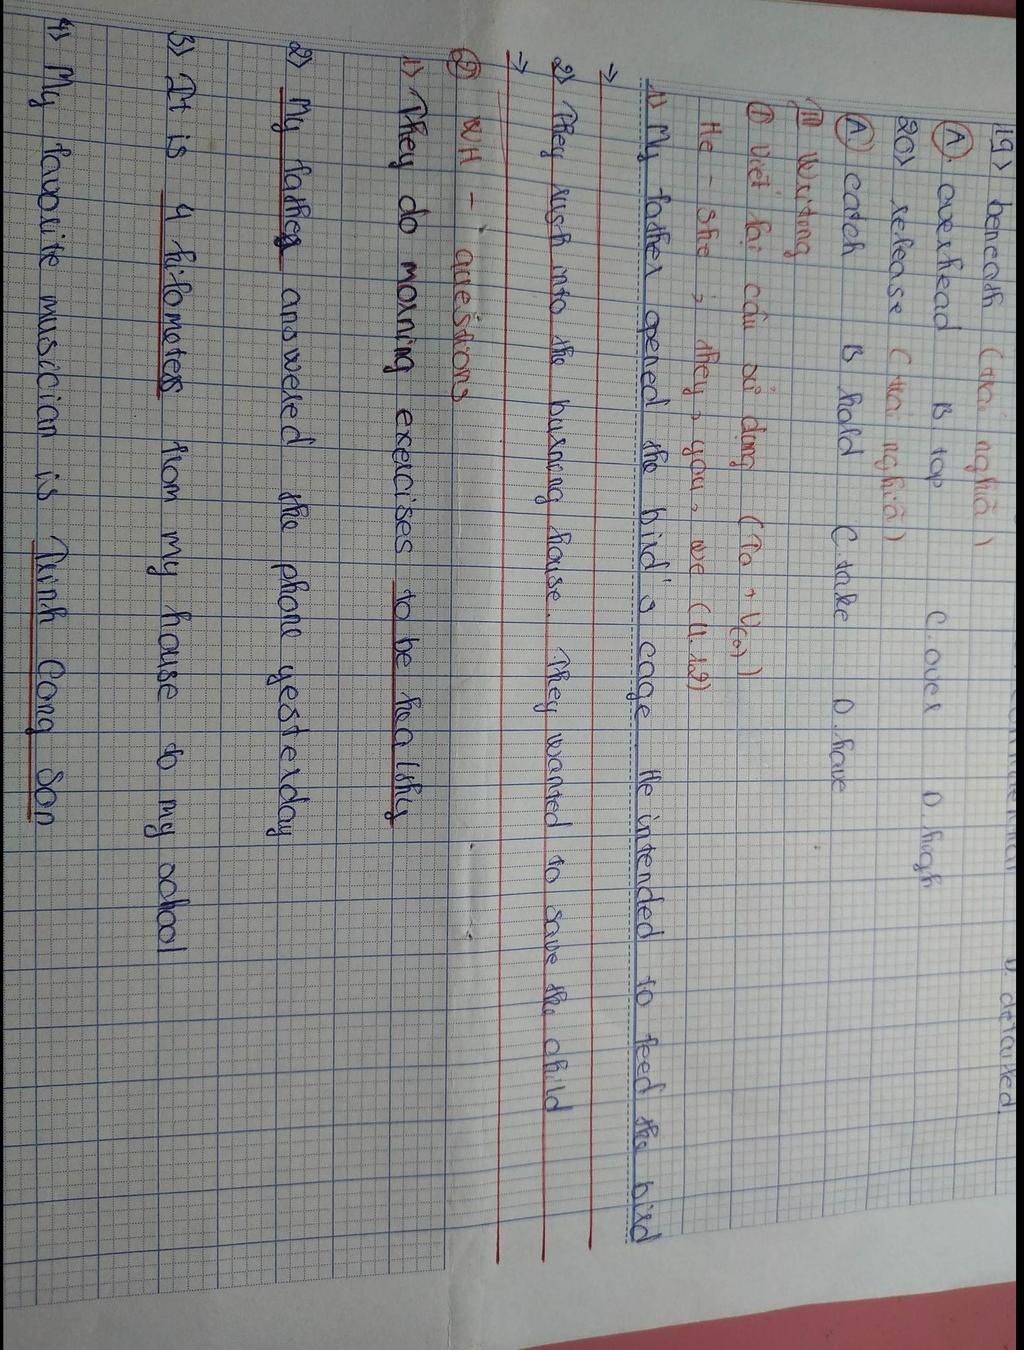 D. detailed
19) beneath (trái nghĩa)
A. overhead B top C. over D. high
20) release (trái nghĩa)
A catch B hold C. take D. have
III Writing
I Viết lại câu sử dụng (To + V(o))
He - she, they, you, we (U.12)
1) My father opened the bird's cage. He intended to feed the bird
→
2) They rush into the burning house. They wanted to save the child
→
II WH - questions
1) They do morning exercises to be healthy
2) My father answered the phone yesterday
3) It is 4 kilometers from my house to my school
4) My favorite musician is Trinh Cong Son